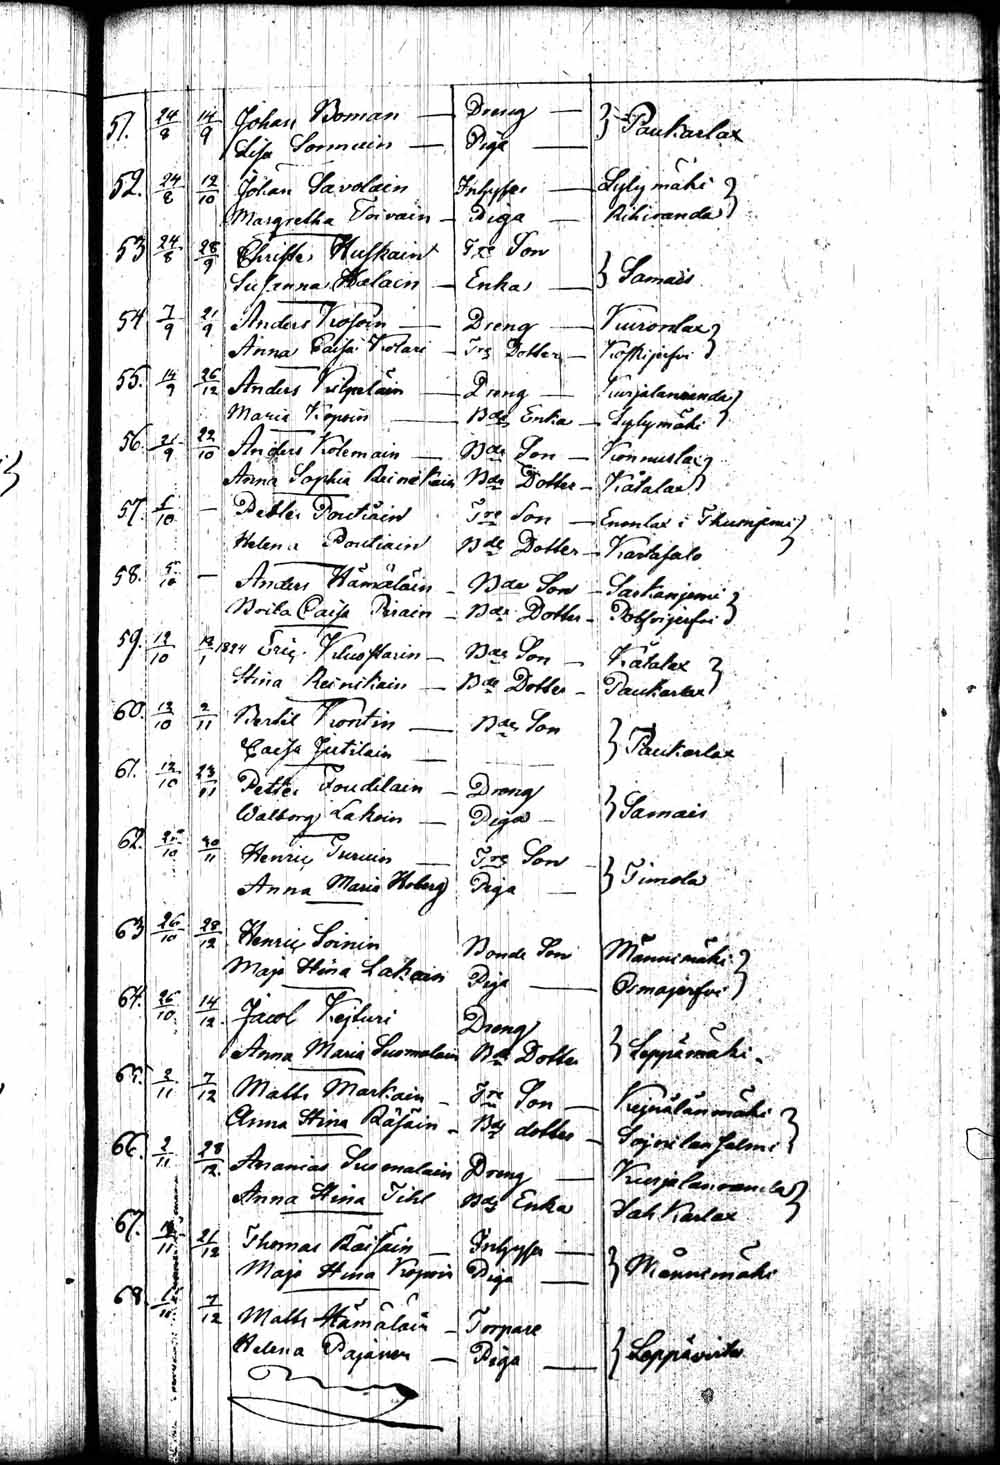 51. 24/8 14/9 Johan Boman — Dreng — } Paukarlax
Lisa Sormuin — Piga —
52. 24/8 12/10 Johan Savolain Inhyses — Lylymäki }
Margretha Toivain — Piga — Rihiranda
53 24/8 28/9 Christer Huskain Tre Son } Samais
Susanna Halain — Enka —
54 7/9 21/9 Anders Kosoin — Dreng — Kurronlax }
Anna Caisa Kolari — Tre Dotter — Koskijerfvi
55. 14/9 26/12 Anders Kilpeläin — Dreng — Kurjalanranda }
Maria Koponin — Bde Enka — Lylymäki
56. 21/9 22/10 Anders Kolemain — Bde Son — Konnuslax }
Anna Sophia Reinikain Bde Dotter — Kätalax
57. 5/10 — Petter Poutiain Tre Son — Enonlax i }
Helena Poutiain Bde Dotter — Kartasalo
58. 5/10 — Anders Hämäläin — Bde Son — Sarkaniemi }
Caisa — Bde Dotter —
59. 12/10 12/1 1824 Eric — Bde Son — Kätalax }
Stina Reinikain — Bde Dotter — Paukarlax
60. 12/10 2/11 Bertil Kontin — Bde Son } Paukarlax
Caisa Jutilain —
61. 12/10 23/11 Petter — Dreng } Samais
Walborg Lakoin — Piga —
62. 30/11 Henric Turuin — Tre Son — } Timola
Anna Maria Hoberg Piga —
63 26/10 28/12 Henric Soinin Bonde Son Männimäki }
Maja Stina Lakain Piga — Osmajerfvi
64. 26/10 14/12 Jacob Kejturi Dreng } Leppämäki
Anna Maria Suomalain Bde Dotter
65. 2/11 7/12 Matts Markain — Tre Son — }
Anna Stina Räsäin — Bde dotter —
66. 2/11 28/12 Ananias Suomalain Dreng — Kurjalanranda }
Anna Stina Tihl Bde Enka
67. 21/12 Thomas Räisäin — Inhyses — } Männimäki
Maja Stina Koponin Piga —
68 7/12 Matts Hämäläin — Torpare } Leppävirta
Helena Pajanen — Piga —